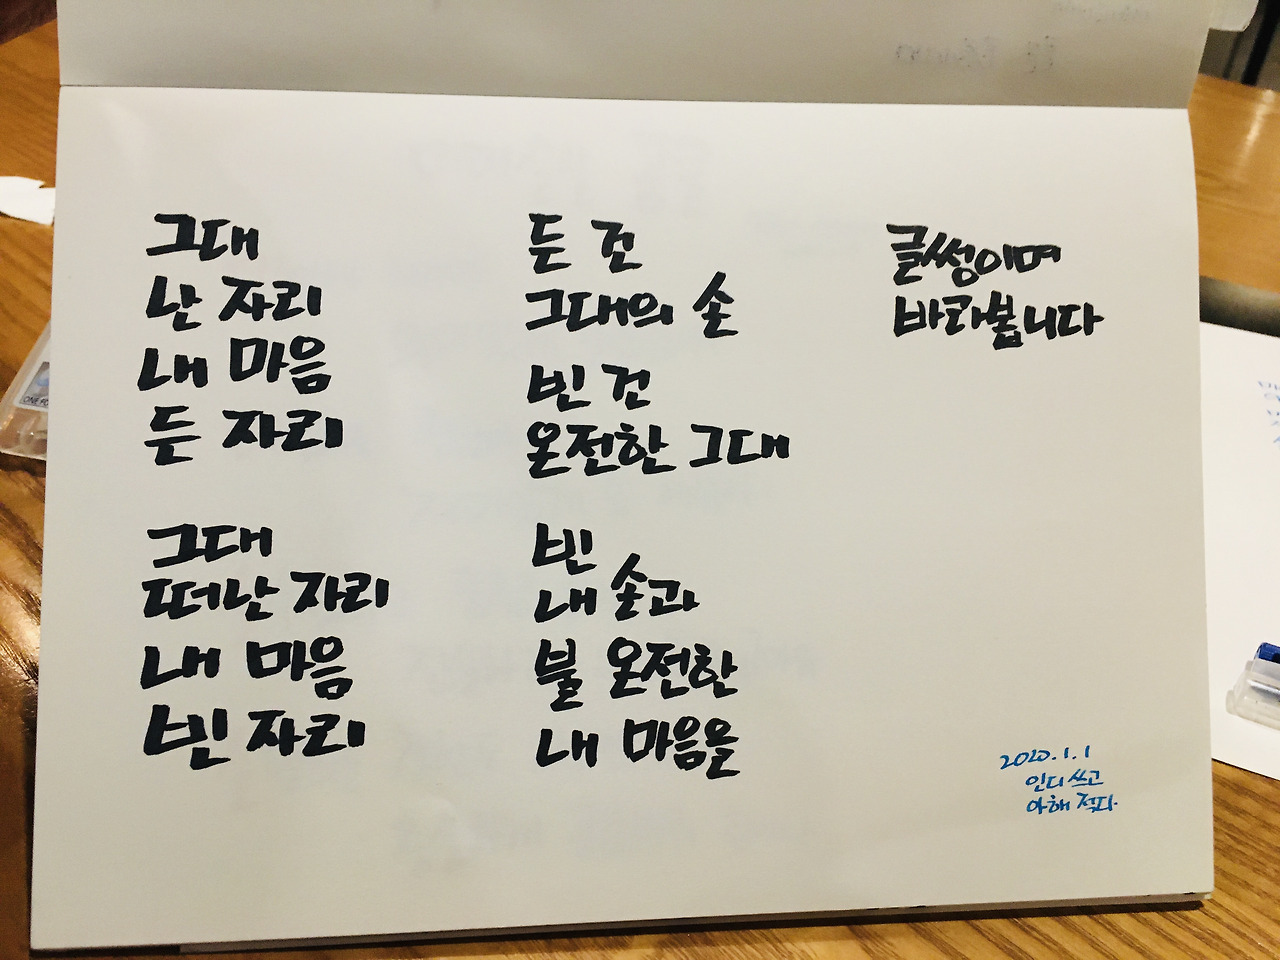 그대
난 자리
내 마음
든 자리
그대
떠난 자리
내 마음
빈 자리
든 건
그대의 손
빈 건
온전한 그대
빈
내 손과
불 온전한
내 마음을
글썽이며
바라봅니다
2020.1.1
인디 쓰고
아해 적다